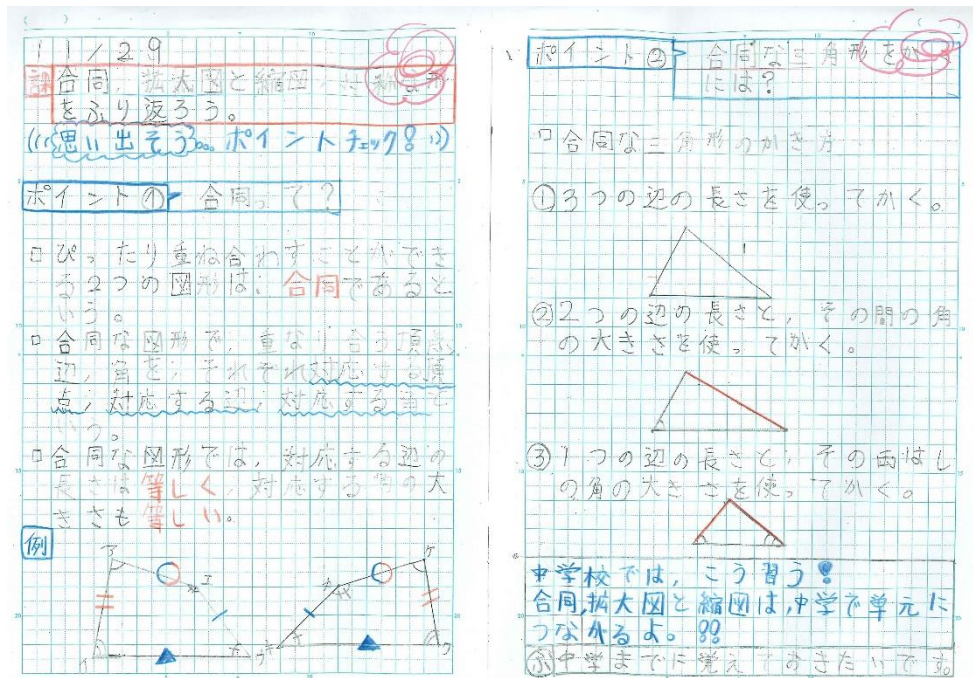 11/29
課 合同、拡大図と縮図、対称な形
をふり返ろう。
思い出そう。ポイントチェック!
ポイント① 合同って?
□ぴったり重ね合わすことができ
る2つの図形は、合同であると
いう。
□合同な図形で、重なり合う頂点、
辺、角を、それぞれ対応する頂
点、対応する辺、対応する角と
いう。
□合同な図形では、対応する辺の
長さは等しく、対応する角の大
きさも等しい。
例
ポイント② 合同な三角形をかく
には?
□合同な三角形のかき方
①3つの辺の長さを使ってかく。
②2つの辺の長さと、その間の角
の大きさを使ってかく。
③1つの辺の長さと、その両はし
の角の大きさを使ってかく。
中学校では、こう習う!
合同、拡大図と縮図は、中学で単元に
つながるよ。!!
ふ 中学までに覚えておきたいです。